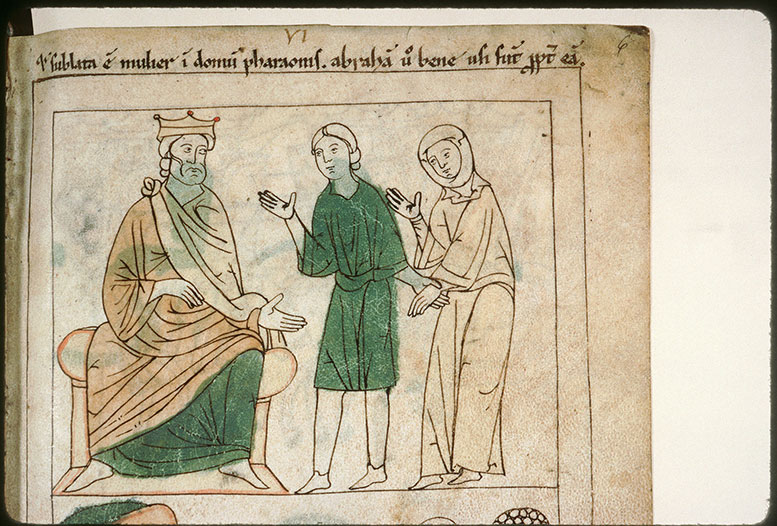 VI
6
⁊ sublata ē mulier ī domū pharaonis. abrahā u̓o bene usi sūt ꝓpt̄ eā.